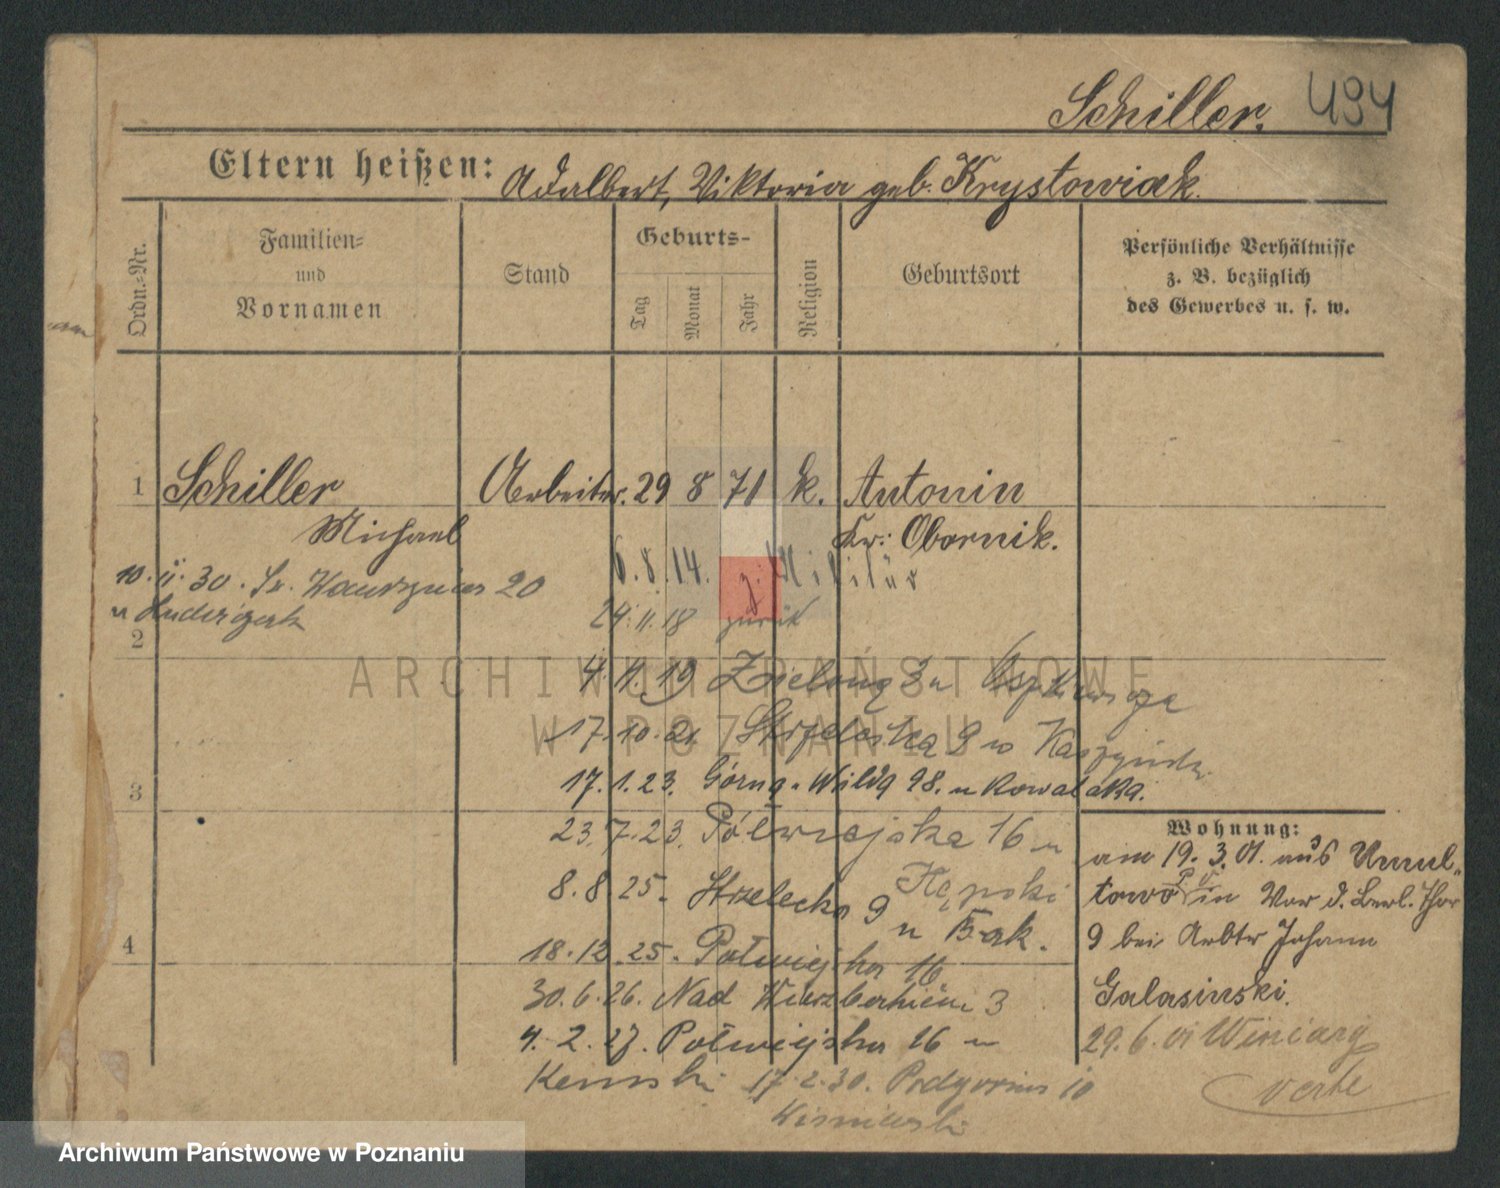 Schiller. 494
Eltern heißen: Adalbert, Viktoria geb. Krystowiak.
Ordn.-Nr.
Familien-
und
Vornamen
Stand
Geburts-
Tag
Monat
Jahr
Religion
Geburtsort
Persönliche Verhältnisse
z. B. bezüglich
des Gewerbes u. s. w.
1 Schiller Arbeiter. 29 8 71 k. Antonin
Michael Kr: Obornik.
6.8.14. z. Militär
10. 30. 20
24.11.18 zurük
u Ludwiczak
2
4. 19 Zielona 3 u
17.10.21 Strzelecka 9 u
17.1.23. Górna-Wilda 98. u Kowalaka.
3
23.7.23. Półwiejska 16 u
Kępski
8.8 25. Strzelecka 9 u Bąk.
4
18.12.25. Półwiejska 16
30.6.26. Nad Wierzbakiem 3
4.2.27. Półwiejska 16 u
Kemski 17.2.30. Podgórna 10
Wiśniewski
Wohnung:
am 19.3.01. aus Umul-
towo P. O. in Vor d. Berl. Thor
9 bei Arbtr Johann
Galasinski.
29.6.01 Winiary
verte
ARCHIWUM PAŃSTWOWE
W POZNANIU
Archiwum Państwowe w Poznaniu